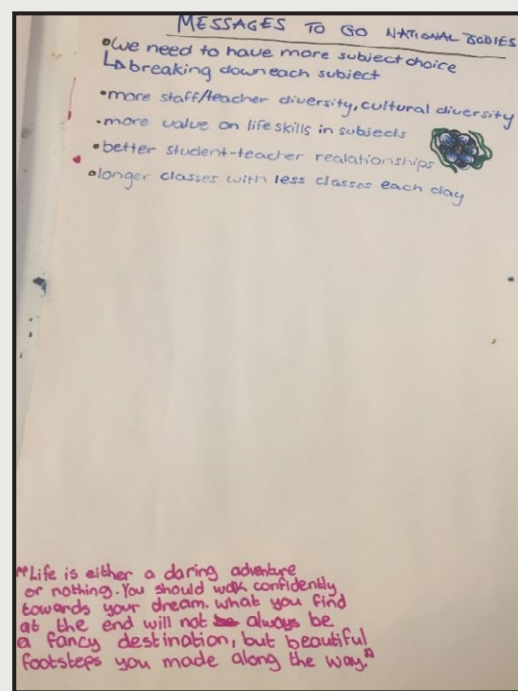 MESSAGES TO GO NATIONAL BODIES
•we need to have more subject choice
↳breaking down each subject
•more staff/teacher diversity, cultural diversity
•more value on life skills in subjects
•better student-teacher realationships
•longer classes with less classes each day
"Life is either a daring adventure
or nothing. You should walk confidently
towards your dream. what you find
at the end will not always be
a fancy destination, but beautiful
footsteps you made along the way."